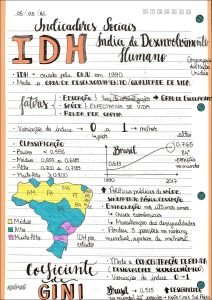 05 / 03 / 21
Indicadores Sociais
IDH Índice de Desenvolvimento Humano
• IDH → criado pela ONU em 1990
Organização das Nações Unidas
• Mede o GRAU DE DESENVOLVIMENTO / QUALIDADE DE VIDA
fatores
• EDUCAÇÃO
→ GRAU DE ESCOLARIDADE
• SAÚDE → EXPECTATIVA DE VIDA
• RENDA PER CAPITA
• Variação do índice → 0 a 1 → melhor
pior
• CLASSIFICAÇÃO
Baixo < 0.555
Médio 0.555 a 0.699
Alto 0.700 a 0.799
Muito Alto > 0.800
Brasil
alto
0.765
84ª posição mundial
1990
2017
AM
PA
MA
Médio
Alto
Muito Alto
IDH por estado
• Políticas públicas de SAÚDE, SANEAMENTO BÁSICO, EDUCAÇÃO
ESTAGNAÇÃO nos últimos anos
↳ Crises econômicas
↳ Manutenção das desigualdades
↳ Perdeu 5 posições no ranking mundial
Coeficiente de GINI
• Mede a CONCENTRAÇÃO DE RENDA
(DESIGUALDADE SOCIOECONÔMICA)
• Variação do índice → 0 - 1
Brasil
spiral